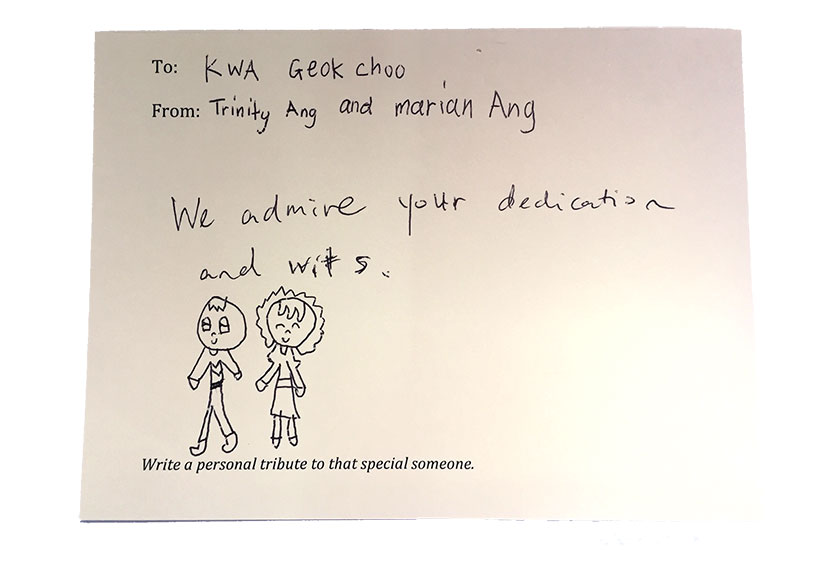 To: KWA Geok choo
From: Trinity Ang and marian Ang
We admire your dedication
and wits.
Write a personal tribute to that special someone.